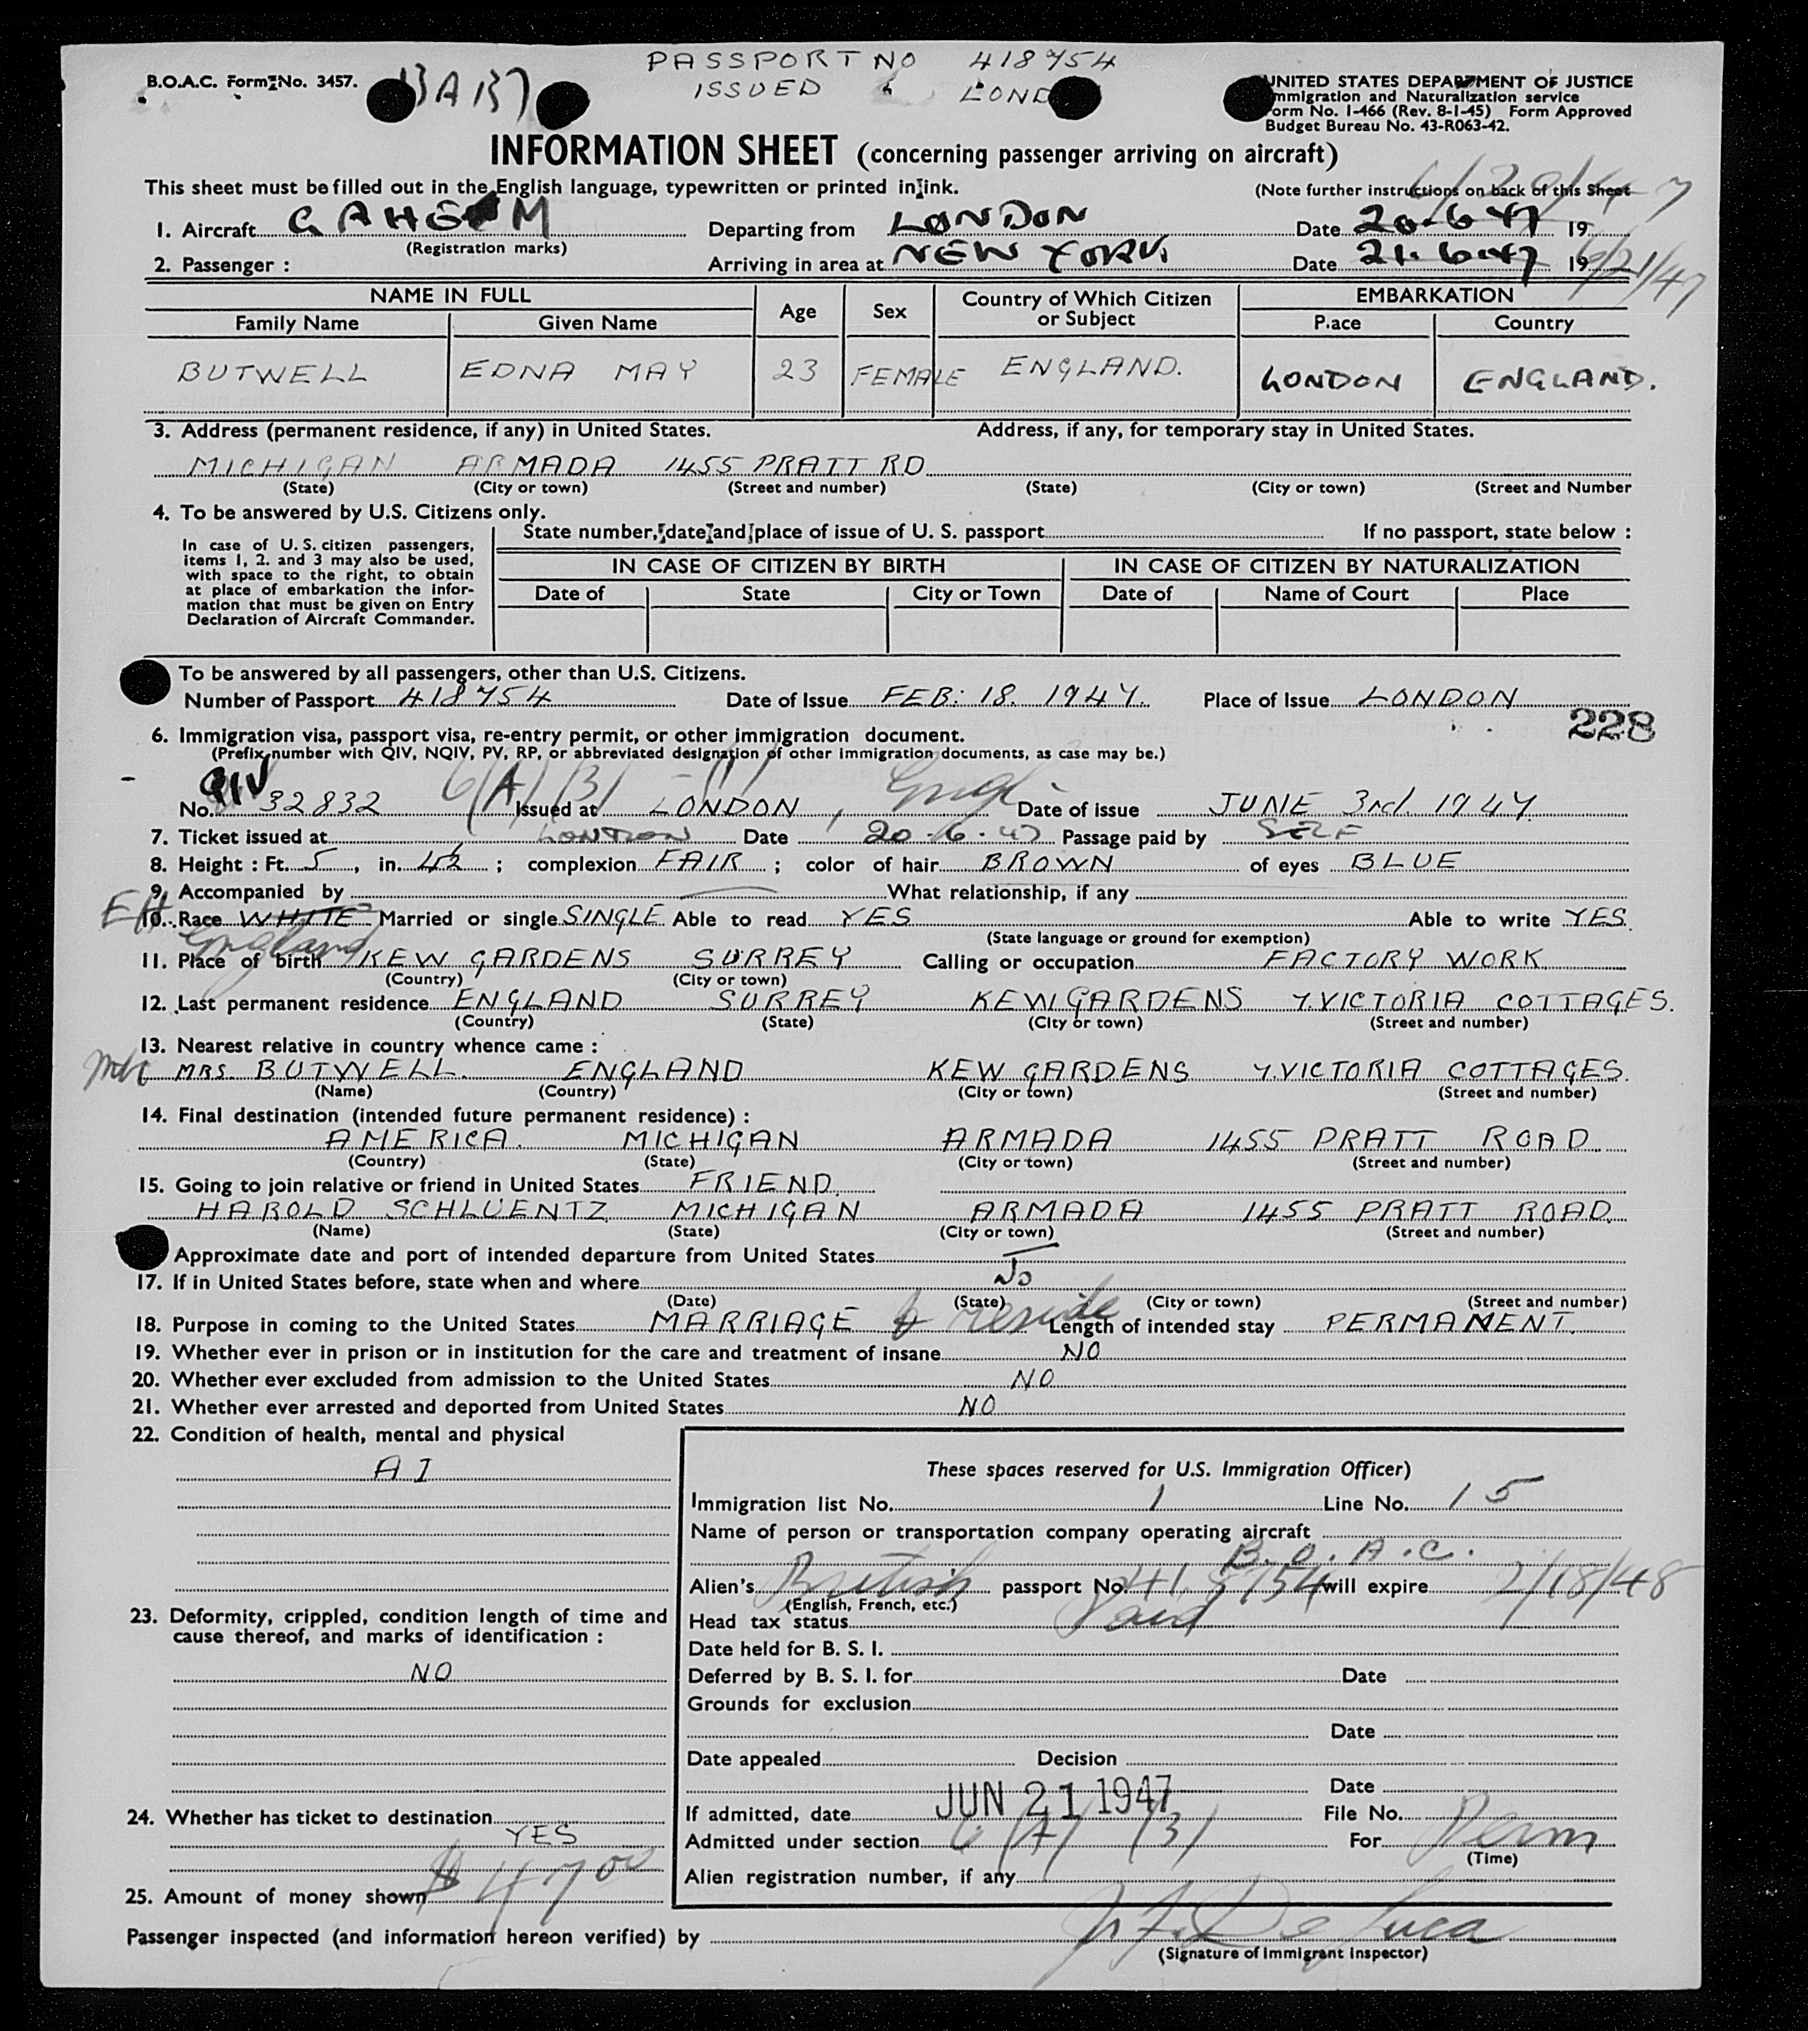 PASSPORT NO 418754
B.O.A.C. Form No. 3457.
ISSUED LOND
UNITED STATES DEPARTMENT OF JUSTICE
Immigration and Naturalization service
Form No. I-466 (Rev. 8-1-45) Form Approved
Budget Bureau No. 43-R063-42.
INFORMATION SHEET (concerning passenger arriving on aircraft)
This sheet must be filled out in the English language, typewritten or printed in ink.
(Note further instructions on back of this Sheet
6/20/47
1. Aircraft G AHEM Departing from LONDON Date 20-6-47 19
(Registration marks)
2. Passenger : Arriving in area at NEW YORK. Date 21.6.47 19 6/21/47
NAME IN FULL Age Sex Country of Which Citizen or Subject EMBARKATION
Family Name Given Name Place Country
BUTWELL EDNA MAY 23 FEMALE ENGLAND. LONDON ENGLAND.
3. Address (permanent residence, if any) in United States. Address, if any, for temporary stay in United States.
MICHIGAN ARMADA 1455 PRATT RD
(State) (City or town) (Street and number) (State) (City or town) (Street and Number
4. To be answered by U.S. Citizens only.
State number, date and place of issue of U. S. passport If no passport, state below :
In case of U. S. citizen passengers,
items 1, 2. and 3 may also be used,
with space to the right, to obtain
at place of embarkation the infor-
mation that must be given on Entry
Declaration of Aircraft Commander.
IN CASE OF CITIZEN BY BIRTH IN CASE OF CITIZEN BY NATURALIZATION
Date of State City or Town Date of Name of Court Place
To be answered by all passengers, other than U.S. Citizens.
Number of Passport 418754 Date of Issue FEB: 18. 1947. Place of Issue LONDON
228
6. Immigration visa, passport visa, re-entry permit, or other immigration document.
(Prefix number with QIV, NQIV, PV, RP, or abbreviated designation of other immigration documents, as case may be.)
QIV 6(A)(3)
No. 32832 Issued at LONDON, Engl. Date of issue JUNE 3rd. 1947.
7. Ticket issued at LONDON Date 20-6-47 Passage paid by SELF
8. Height : Ft. 5, in. 4½ ; complexion FAIR ; color of hair BROWN of eyes BLUE
9. Accompanied by What relationship, if any
10. Race WHITE Married or single SINGLE Able to read YES Able to write YES.
(State language or ground for exemption)
England
11. Place of birth KEW GARDENS SURREY Calling or occupation FACTORY WORK.
(Country) (City or town)
12. Last permanent residence ENGLAND SURREY KEW GARDENS 7.VICTORIA COTTAGES.
(Country) (State) (City or town) (Street and number)
13. Nearest relative in country whence came :
MRS. BUTWELL. ENGLAND KEW GARDENS 7.VICTORIA COTTAGES.
(Name) (Country) (City or town) (Street and number)
14. Final destination (intended future permanent residence) :
AMERICA. MICHIGAN ARMADA 1455 PRATT ROAD
(Country) (State) (City or town) (Street and number)
15. Going to join relative or friend in United States FRIEND.
HAROLD SCHLUENTZ MICHIGAN ARMADA 1455 PRATT ROAD.
(Name) (State) (City or town) (Street and number)
Approximate date and port of intended departure from United States
17. If in United States before, state when and where No
(Date) (State) (City or town) (Street and number)
18. Purpose in coming to the United States MARRIAGE to reside Length of intended stay PERMANENT.
19. Whether ever in prison or in institution for the care and treatment of insane NO
20. Whether ever excluded from admission to the United States NO
21. Whether ever arrested and deported from United States NO
22. Condition of health, mental and physical
A1
These spaces reserved for U.S. Immigration Officer)
Immigration list No. 1 Line No. 15
Name of person or transportation company operating aircraft
B.O.A.C.
Alien's British passport No. 418754 will expire 2/18/48
(English, French, etc.)
Head tax status Paid
Date held for B. S. I.
Deferred by B. S. I. for Date
Grounds for exclusion
Date
Date appealed Decision
Date
If admitted, date JUN 21 1947 File No.
Admitted under section 6(A)(3) For Perm
(Time)
Alien registration number, if any
23. Deformity, crippled, condition length of time and
cause thereof, and marks of identification :
NO
24. Whether has ticket to destination
YES
25. Amount of money shown $47.00
Passenger inspected (and information hereon verified) by
(Signature of Immigrant Inspector)